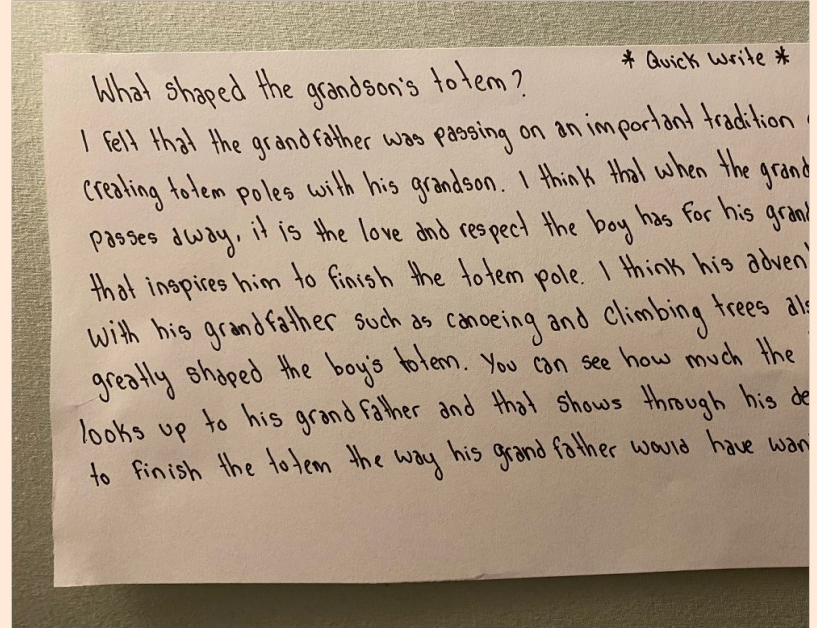 * Quick Write *
What shaped the grandson's totem?
I felt that the grandfather was passing on an important tradition
creating totem poles with his grandson. I think that when the grand
passes away, it is the love and respect the boy has for his grand
that inspires him to finish the totem pole. I think his adven
with his grandfather such as canoeing and climbing trees als
greatly shaped the boy's totem. You can see how much the
looks up to his grandfather and that shows through his de
to finish the totem the way his grandfather would have wan